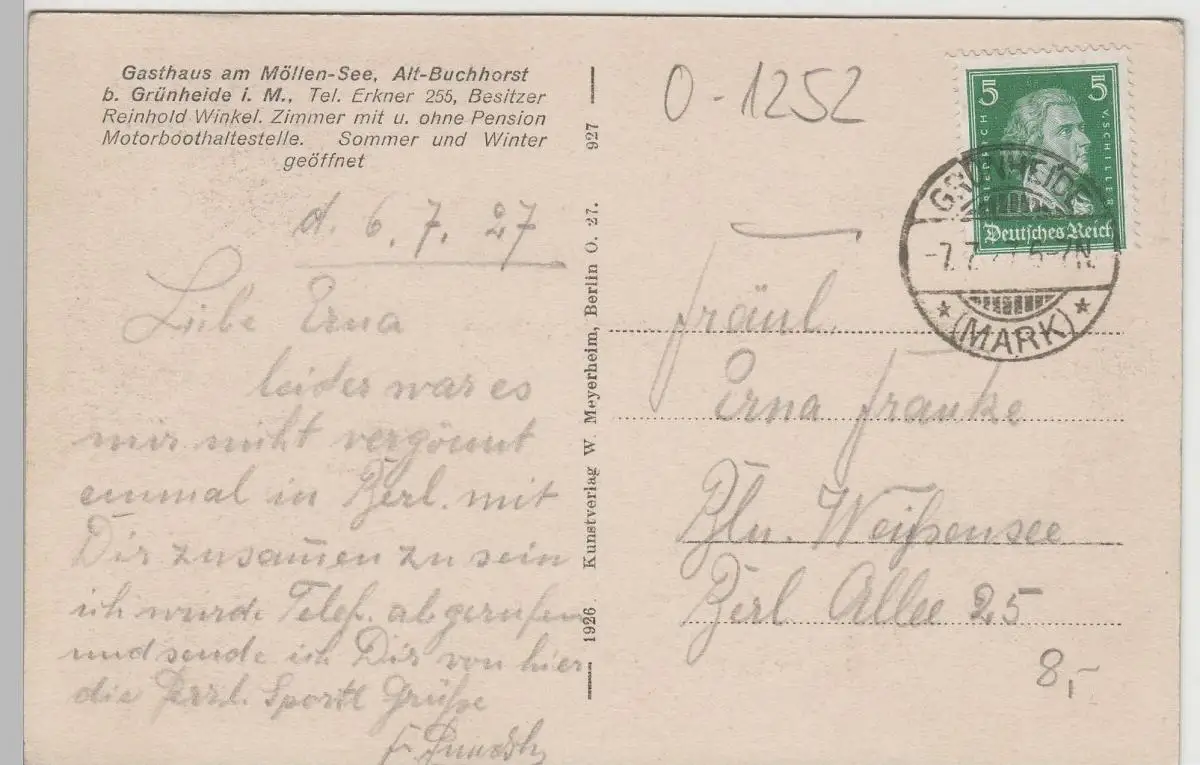 Gasthaus am Möllen-See, Alt-Buchhorst
b. Grünheide i. M., Tel. Erkner 255, Besitzer
Reinhold Winkel. Zimmer mit u. ohne Pension
Motorboothaltestelle. Sommer und Winter
geöffnet
d. 6. 7. 27
Liebe Erna
leider war es
mir nicht vergönnt
einmal in Berl. mit
Dir zusam̅en zu sein
ich wurde Telef. abgerufen
und sende ich Dir von hier
die herzl. Sportl Grüße
1926 Kunstverlag W. Meyerheim, Berlin O. 27. 927
O-1252
5 5
FRIEDRICH V. SCHILLER
Deutsches Reich
GRÜNHEIDE
(MARK)
Fräul.
Erna Franke
Bln. Weißensee
Berl Allee 25
8,-